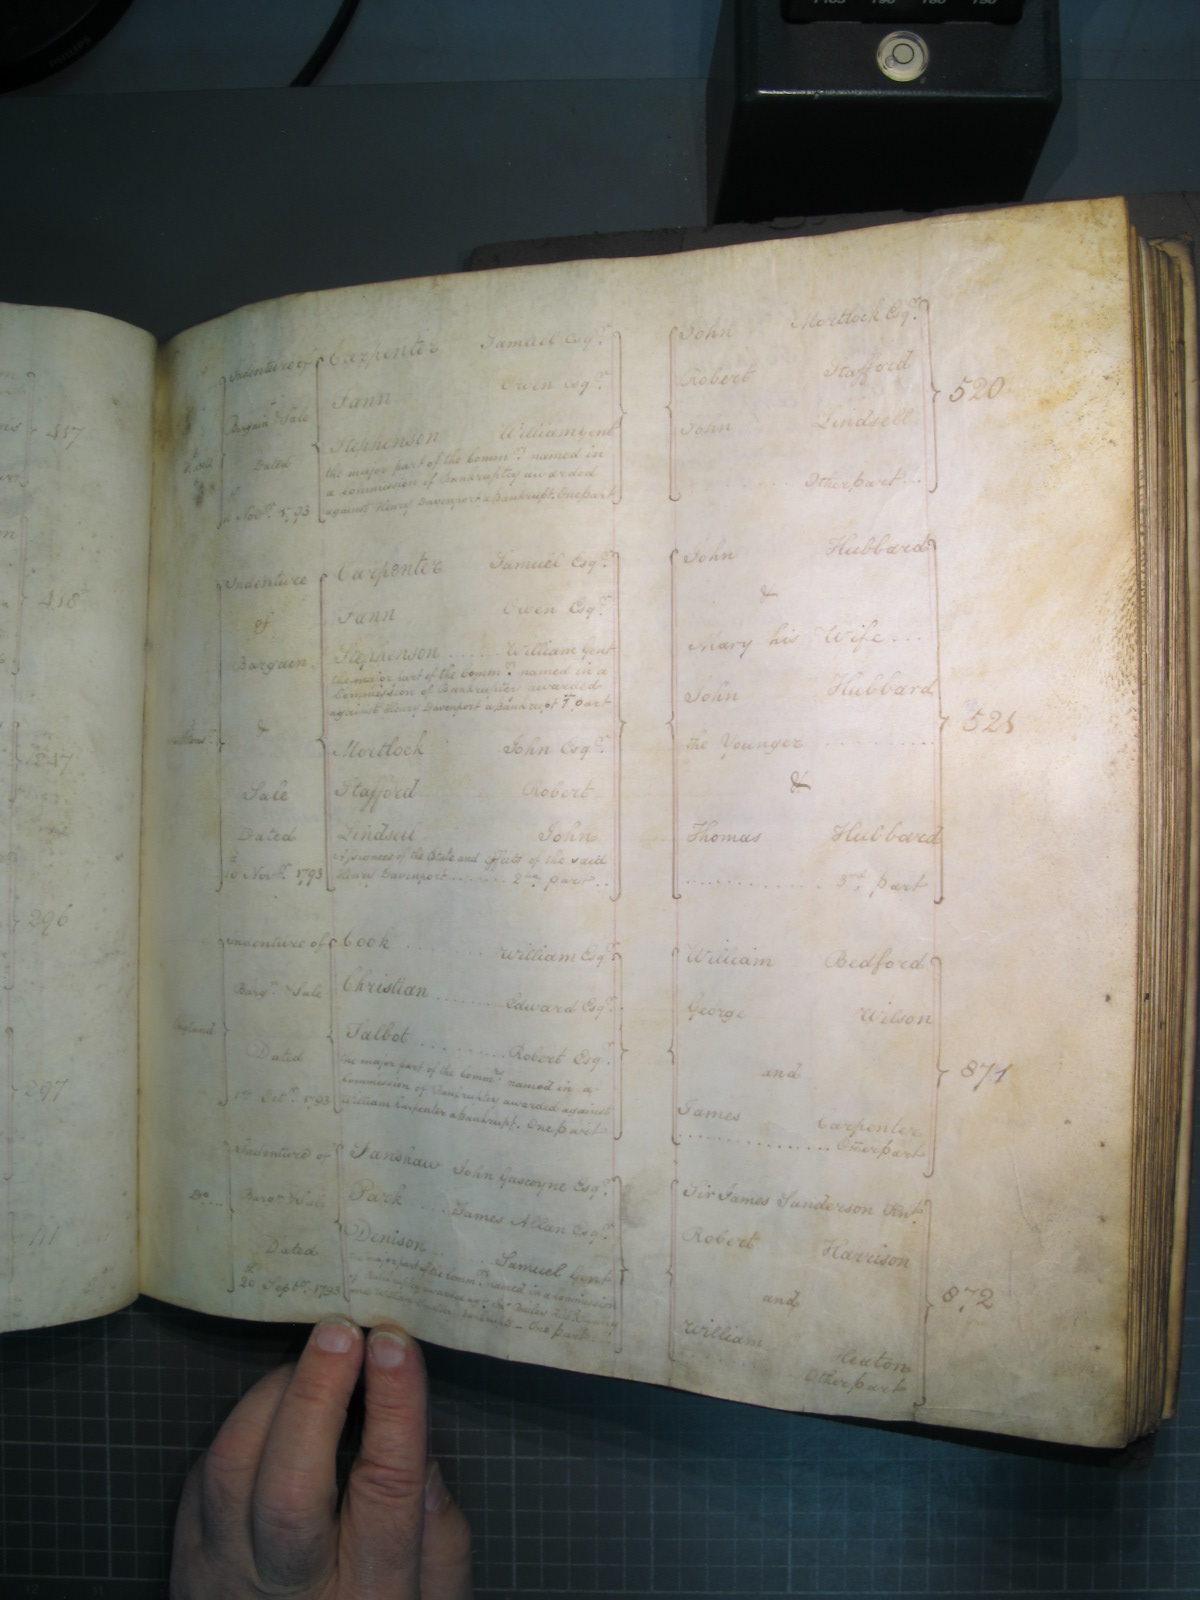 417
418
247
296
297
Indenture of
Bargain & Sale
Dated
Novr. 1793
Carpenter Samuel Esqr.
Fann Owen Esqr.
Stephenson William Gent
the major part of the Commrs. named in
a Commission of Bankruptcy awarded
against Henry Davenport a Bankrupt. One part
John Mortlock Esqr.
Robert Stafford
John Lindsell
Other part
520
Indenture
of
Bargain
&
Sale
Dated
Novr. 1793
Carpenter Samuel Esqr.
Fann Owen Esqr.
Stephenson William Gent
the major part of the Commrs. named in a
Commission of Bankruptcy awarded
against Henry Davenport a Bankrupt 1st part
Mortlock John Esqr.
Stafford Robert
Lindsell John
Assignees of the Estate and Effects of the said
Henry Davenport 2nd part
John Hubbard
&
Mary his Wife
John Hubbard
the Younger
&
Thomas Hubbard
3rd part
521
Indenture of
Bargn. & Sale
Dated
Octr. 1793
Cook William Esqr.
Christian Edward Esqr.
Talbot Robert Esqr.
the major part of the Commrs. named in a
Commission of Bankruptcy awarded against
William Carpenter a Bankrupt. One part
William Bedford
George Wilson
and
James Carpenter
Other part
871
Indenture of
Do. Bargn. & Sale
Dated
20 Septr. 1793
Fanshaw John Gascoyne Esqr.
Park James Allan Esqr.
Denison Samuel Gent
part of the Commrs. named in a Commission
One part
Sir James Sanderson Knt.
Robert Harrison
and
William Heaton
Other part
872